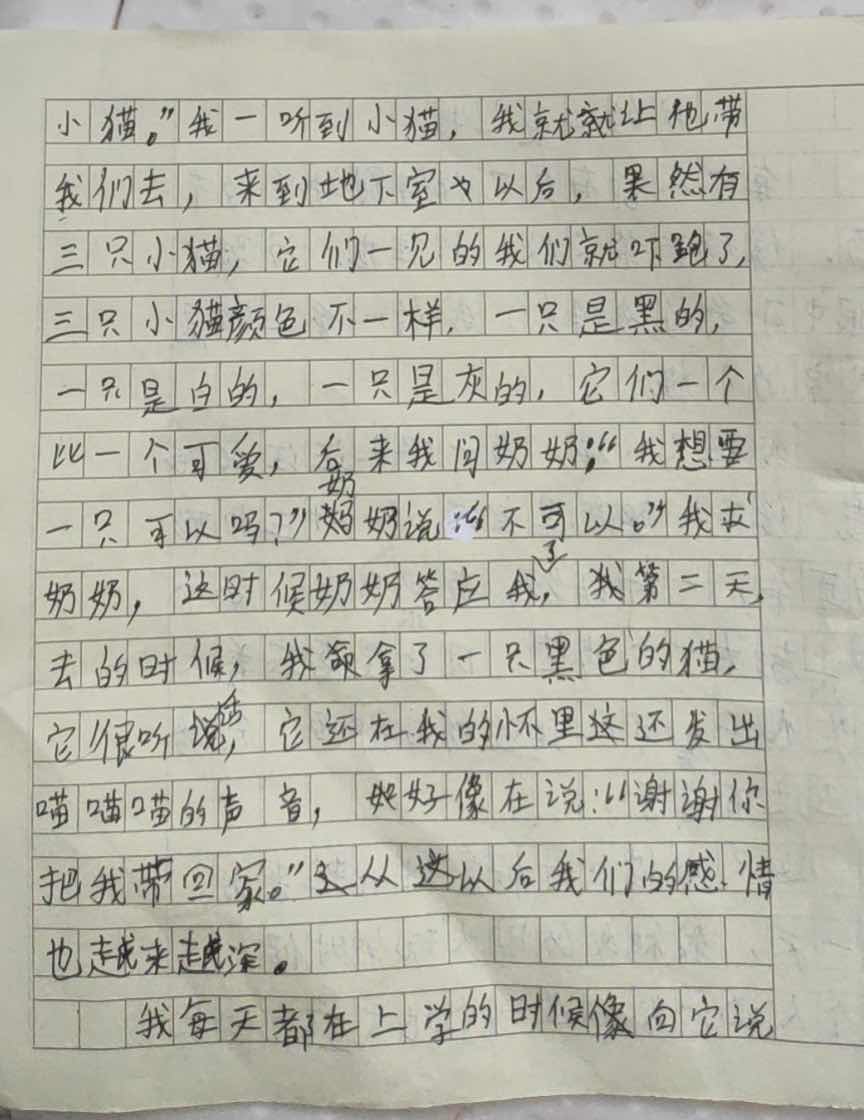 小猫。”我一听到小猫，我就就让他带
我们去，来到地下室以后，果然有
三只小猫，它们一见的我们就吓跑了，
三只小猫颜色不一样，一只是黑的，
一只是白的，一只是灰的，它们一个
比一个可爱，后来我问奶奶：“我想要
一只可以吗？”奶奶说：“不可以。”我求
奶奶，这时候奶奶答应我了，我第二天，
去的时候，我拿了一只黑色的猫，
它很听话，它还在我的怀里这还发出
喵喵喵的声音，她好像在说：“谢谢你
把我带回家。”从这以后我们的感情
也越来越深。
我每天都在上学的时候像向它说